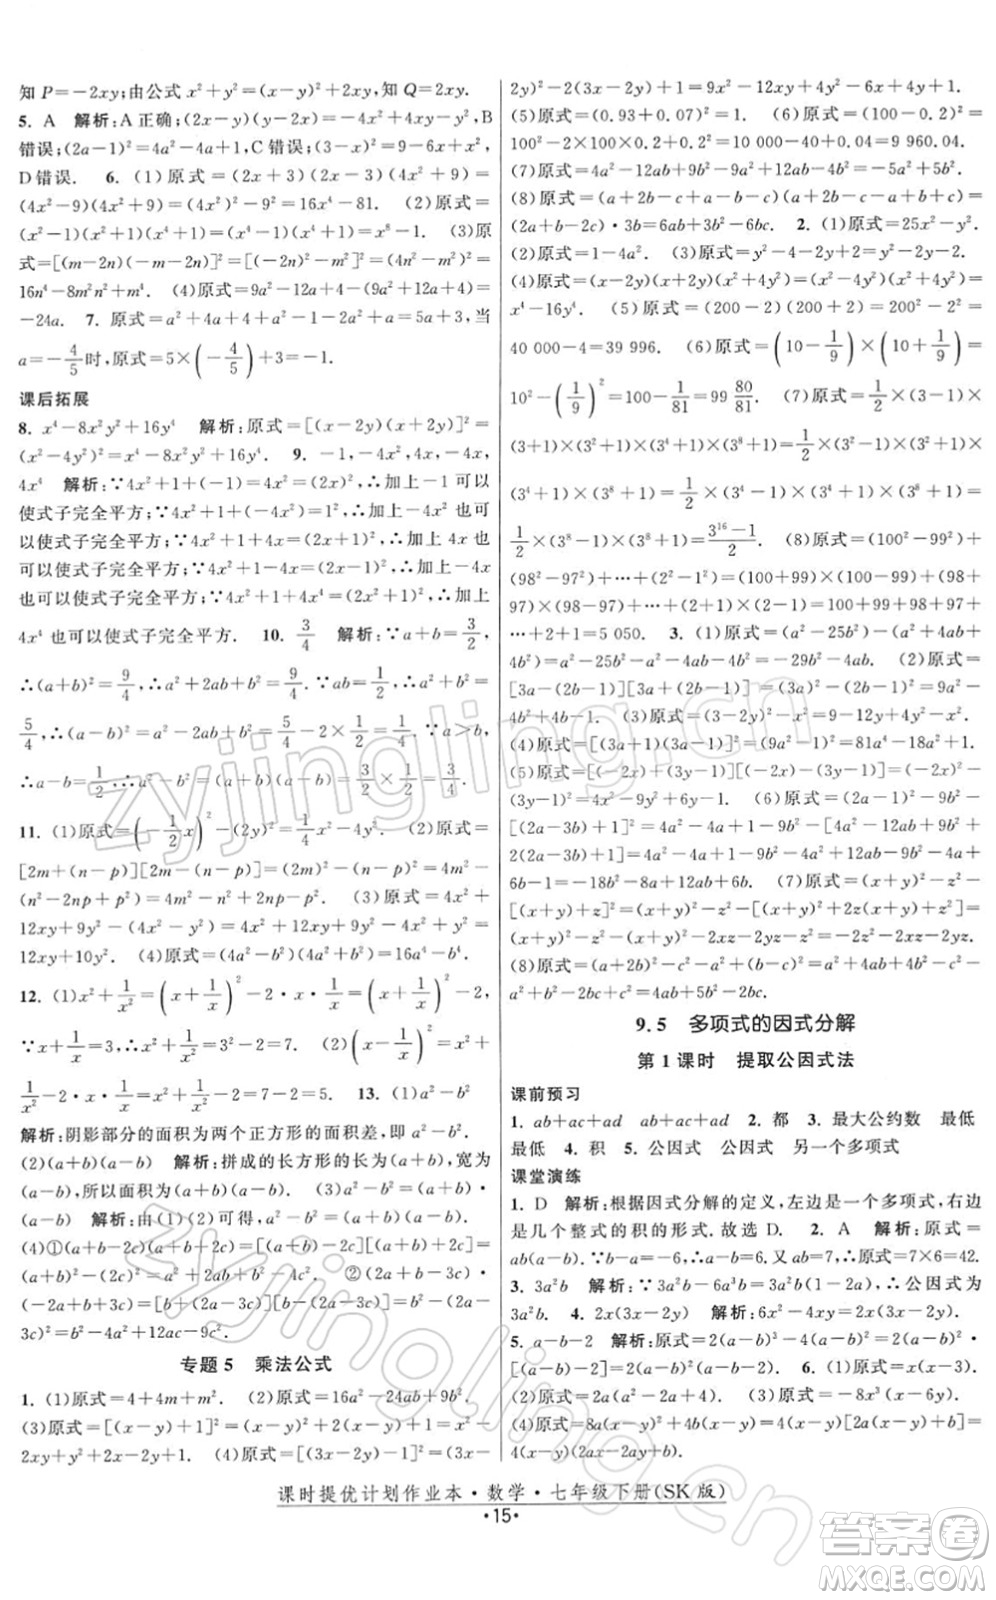 知 P=-2xy;由公式 x²+y²=(x-y)²+2xy,知 Q=2xy.
5. A 解析:A 正确;(2x-y)(y-2x)=-4x²+4xy-y²,B
错误;(2a-1)²=4a²-4a+1,C 错误;(3-x)²=9-6x+x²,
D 错误. 6. (1)原式=(2x+3)(2x-3)(4x²+9)=
(4x²-9)(4x²+9)=(4x²)²-9²=16x⁴-81. (2)原式=
(x²-1)(x²+1)(x⁴+1)=(x⁴-1)(x⁴+1)=x⁸-1. (3)原
式=[(m-2n)(-m-2n)]²=[(-2n)²-m²]²=(4n²-m²)²=
16n⁴-8m²n²+m⁴. (4)原式=9a²-12a+4-(9a²+12a+4)=
-24a. 7. 原式=a²+4a+4+a²-1-2a²+a=5a+3,当
a=-4/5时,原式=5×(-4/5)+3=-1.
课后拓展
8. x⁴-8x²y²+16y⁴ 解析:原式=[(x-2y)(x+2y)]²=
(x²-4y²)²=x⁴-8x²y²+16y⁴. 9. -1,-4x²,4x,-4x,
4x⁴ 解析:∵4x²+1+(-1)=4x²=(2x)²,∴加上-1 可以
使式子完全平方;∵4x²+1+(-4x²)=1²,∴加上-4x² 也
可以使式子完全平方;∵4x²+1+4x=(2x+1)²,∴加上 4x 也
可以使式子完全平方;∵4x²+1-4x=(2x-1)²,∴加上-4x
也可以使式子完全平方;∵4x²+1+4x⁴=(2x²+1)²,∴加上
4x⁴ 也可以使式子完全平方. 10. 3/4 解析:∵a+b=3/2,
∴(a+b)²=9/4,∴a²+2ab+b²=9/4. ∵ab=1/2,∴a²+b²=
5/4,∴(a-b)²=a²-2ab+b²=5/4-2×1/2=1/4. ∵a>b,
∴a-b=1/2,∴a²-b²=(a+b)(a-b)=3/2×1/2=3/4.
11. (1)原式=(-1/2x)²-(2y)²=1/4x²-4y². (2)原式=
[2m+(n-p)][2m-(n-p)]=(2m)²-(n-p)²=4m²-
(n²-2np+p²)=4m²-n²+2np-p². (3)原式=4x²+
12xy+9y²-(4x²-y²)=4x²+12xy+9y²-4x²+y²=
12xy+10y². (4)原式=(4a²-b²)(4a²+b²)=16a⁴-b⁴.
12. (1)x²+1/x²=(x+1/x)²-2·x·1/x=(x+1/x)²-2,
∵x+1/x=3,∴(x+1/x)²-2=3²-2=7. (2)(x-1/x)²=x²+
1/x²-2·x·1/x=x²+1/x²-2=7-2=5. 13. (1)a²-b²
解析:阴影部分的面积为两个正方形的面积差,即 a²-b².
(2)(a+b)(a-b) 解析:拼成的长方形的长为(a+b),宽为
(a-b),所以面积为(a+b)(a-b). (3)a²-b²=(a+b)·
(a-b) 解析:由(1)(2)可得,a²-b²=(a+b)(a-b).
(4)①(a+b)(a-b)=a²-b² ②(2a+b-3c)·
(-b+2a+3c)=[2a+(b-3c)][2a-(b-3c)]=(2a)²-
(b-3c)²=4a²-b²+6bc-9c².
专题 5 乘法公式
1. (1)原式=4+4m+m². (2)原式=16a²-24ab+9b².
(3)原式=[(x-y)+1]²=(x-y)²+2(x-y)+1=x²-
2xy+y²+2x-2y+1. (4)原式=[(3x-2y)-1]²=(3x-
2y)²-2(3x-2y)+1=9x²-12xy+4y²-6x+4y+1.
(5)原式=(0.93+0.07)²=1²=1. (6)原式=(100-0.2)²=
100²-2×100×0.2+0.2²=10 000-40+0.04=9 960.04.
(7)原式=4a²-12ab+9b²-9a²+12ab-4b²=-5a²+5b².
(8)原式=(a+2b-c+a+b-c)(a+2b-c-a-b+c)=
(2a+3b-2c)·b=2ab+3b²-2bc. 2. (1)原式=25x²-y².
(2)原式=1-4a². (3)原式=y²-4-y²-2y=-2y-4.
(4)原式=(x-2y)(x+2y)(x²+4y²)=(x²-4y²)(x²+4y²)=
x⁴-16y⁴. (5)原式=(200-2)(200+2)=200²-2²=
40 000-4=39 996. (6)原式=(10-1/9)×(10+1/9)=
10²-(1/9)²=100-1/81=99 80/81. (7)原式=1/2×(3-1)×
(3+1)×(3²+1)×(3⁴+1)×(3⁸+1)=1/2×(3²-1)×(3²+1)
×(3⁴+1)×(3⁸+1)=1/2×(3⁴-1)×(3⁴+1)×(3⁸+1)=
1/2×(3⁸-1)×(3⁸+1)=(3¹⁶-1)/2. (8)原式=(100²-99²)+
(98²-97²)+…+(2²-1²)=(100+99)(100-99)+(98+
97)×(98-97)+…+(2+1)×(2-1)=100+99+98+97+
…+2+1=5 050. 3. (1)原式=(a²-25b²)-(a²+4ab+
4b²)=a²-25b²-a²-4ab-4b²=-29b²-4ab. (2)原式=
[3a-(2b-1)][3a+(2b-1)]=(3a)²-(2b-1)²=9a²-
4b²+4b-1. (3)原式=(3-2x²)²-x²=9-12x²+4x⁴-x²=
4x⁴-13x²+9. (4)原式=[(3a-1)(3a+1)]²=(9a²-1)²=81a⁴-18a²+1.
(5)原式=[(3x-y)+1][(3x-y)-1]=
(3x-y)²-1=9x²-6xy+y²-1. (6)原式=
[(2a-3b)+1]²=(2a-3b)²+
2(2a-3b)+1=4a²-12ab+9b²+4a-
6b+1
(7)原式=(x+y)²-z²-
[(x+y)+z]²=(x+y)²-z²-[(x+y)²+2(x+y)z+z²]=
(x+y)²-z²-(x+y)²-2xz-2yz-z²=-2z²-2xz-2yz.
(8)原式=(2a+b)²-c²-(2a-b)²+c²=4a²+4ab+
b²-c²-
9.5 多项式的因式分解
第 1 课时 提取公因式法
课前预习
1. ab+ac+ad ab+ac+ad 2. 都 3. 最大公约数 最低
最低 4. 积 5. 公因式 公因式 另一个多项式
课堂演练
1. D 解析:根据因式分解的定义,左边是一个多项式,右边
是几个整式的积的形式. 故选 D. 2. A 解析:原式=
ab(a-b). ∵b-a=-6,∴a-b=6. 又 ab=7,∴原式=7×6=42.
3. 3a²b 解析:∵3a²b-6a³b=3a²b(1-2a),∴公因式为
3a²b. 4. 2x(3x-2y) 解析:6x²-4xy=2x(3x-2y).
5. a-b-2 解析:原式=2(a-b)³-4(a-b)²=2(a-b)²·
[(a-b)-2]=2(a-b)²(a-b-2). 6. (1)原式=
3x(x-2y+1). (2)原式=4a²(a+3). (3)原式=-8x³(x-6y).
(4)原式=8a(x-y)²-4(x-y)=4(x-y)[2a(x-y)-1]=
4(x-y)(2ax-2ay-1).
课时提优计划作业本·数学·七年级下册(SK 版)
·15·
zyjingling.cn
zyjingling.cn
答案圈
MXQE.COM